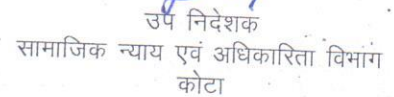 उप निदेशक
सामाजिक न्याय एवं अधिकारिता विभाग
कोटा